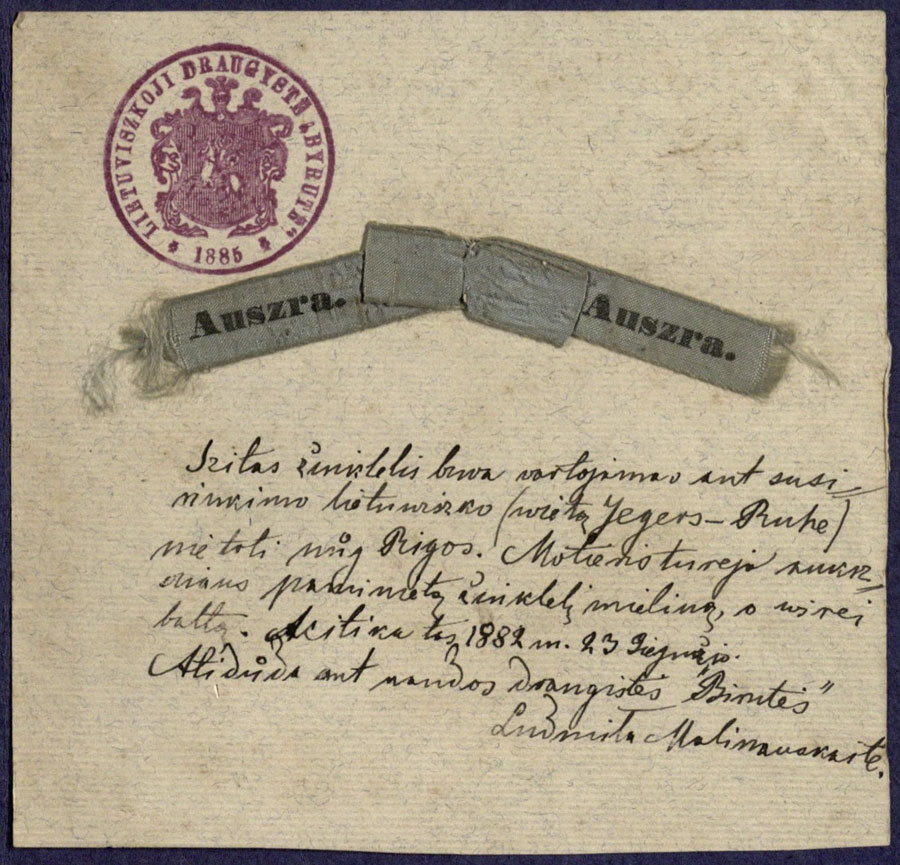 LIETUVISZKOJI DRAUGYSTĖ „BYRUTĖ"
1885
Auszra. Auszra.
Szitas žinklelis buwa vartojamas ant susi-
rinkimo lietuwizko (wiėtą Jegers-Ruhe)
nė toli nůg Rigos. Moteris turėjo auksz-
cziaus paminėtą žinklelį mieliną, o wirei
baltą. Atitika tas 1882 m. 23
Atidůda ant naudos draugistės „Birutės"
Ludmila Malinauskaitė.